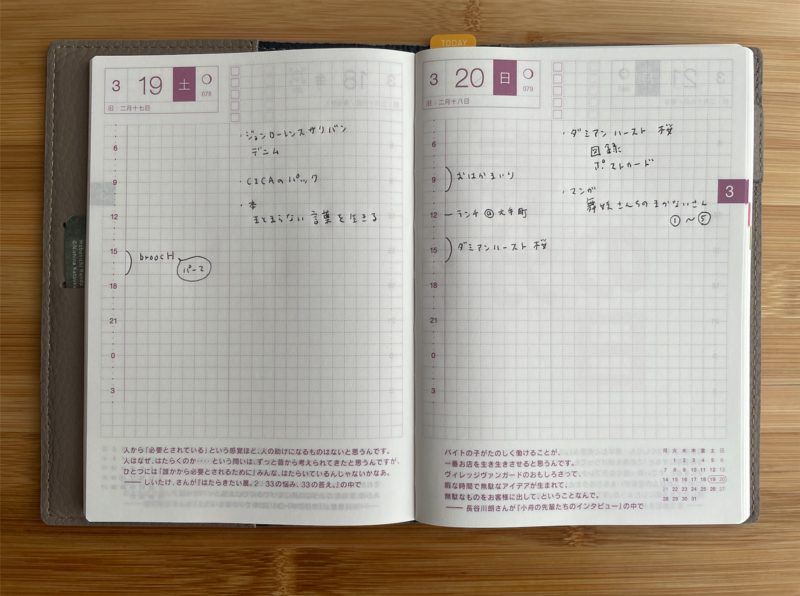 TODAY
3 19 土
079
旧：二月十七日
・ジョンローレンスサリバン
デニム
・CICAのパック
・本
まとまらない言葉を生きる
6
9
12
15
18
21
0
3
broocH
パーマ
人から「必要とされている」という感覚ほど、人の助けになるものはないと思うんです。
人はなぜ、はたらくのか‥‥という問いは、ずっと昔から考えられてきたと思うんですが、
ひとつには「誰かから必要とされるために」みんな、はたらいているんじゃないかなあ。
―― しいたけ.さんが『はたらきたい展。2：33の悩み、33の答え。』の中で
3 20 日
079
旧：二月十八日
・ダミアンハースト 桜
図録
ポストカード
・マンガ
舞妓さんちのまかないさん
①〜⑤
6
9
12
15
18
21
0
3
おはかまいり
ランチ@大手町
ダミアンハースト 桜
3
バイトの子がたのしく働けることが、
一番お店を生き生きさせると思うんです。
ヴィレッジヴァンガードのおもしろさって、
暇な時間で無駄なアイデアが生まれて、
無駄なものをお客様に出して、ということなんで。
―― 長谷川朗さんが『小舟の先輩たちのインタビュー』の中で
月 火 水 木 金 土 日
1 2 3 4 5 6
7 8 9 10 11 12 13
14 15 16 17 18 19 20
21 22 23 24 25 26 27
28 29 30 31